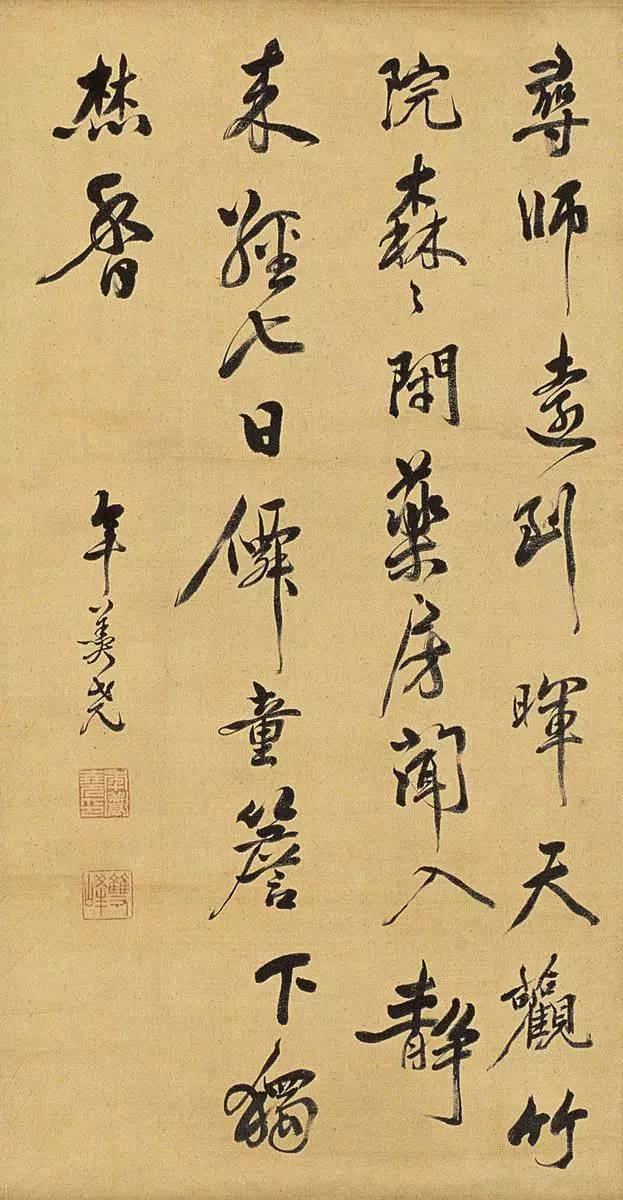 尋師遠到暉天觀竹
院森〻閉藥房聞入靜
來經七日僊童簷下獨
焚香
年羹堯
雙峰